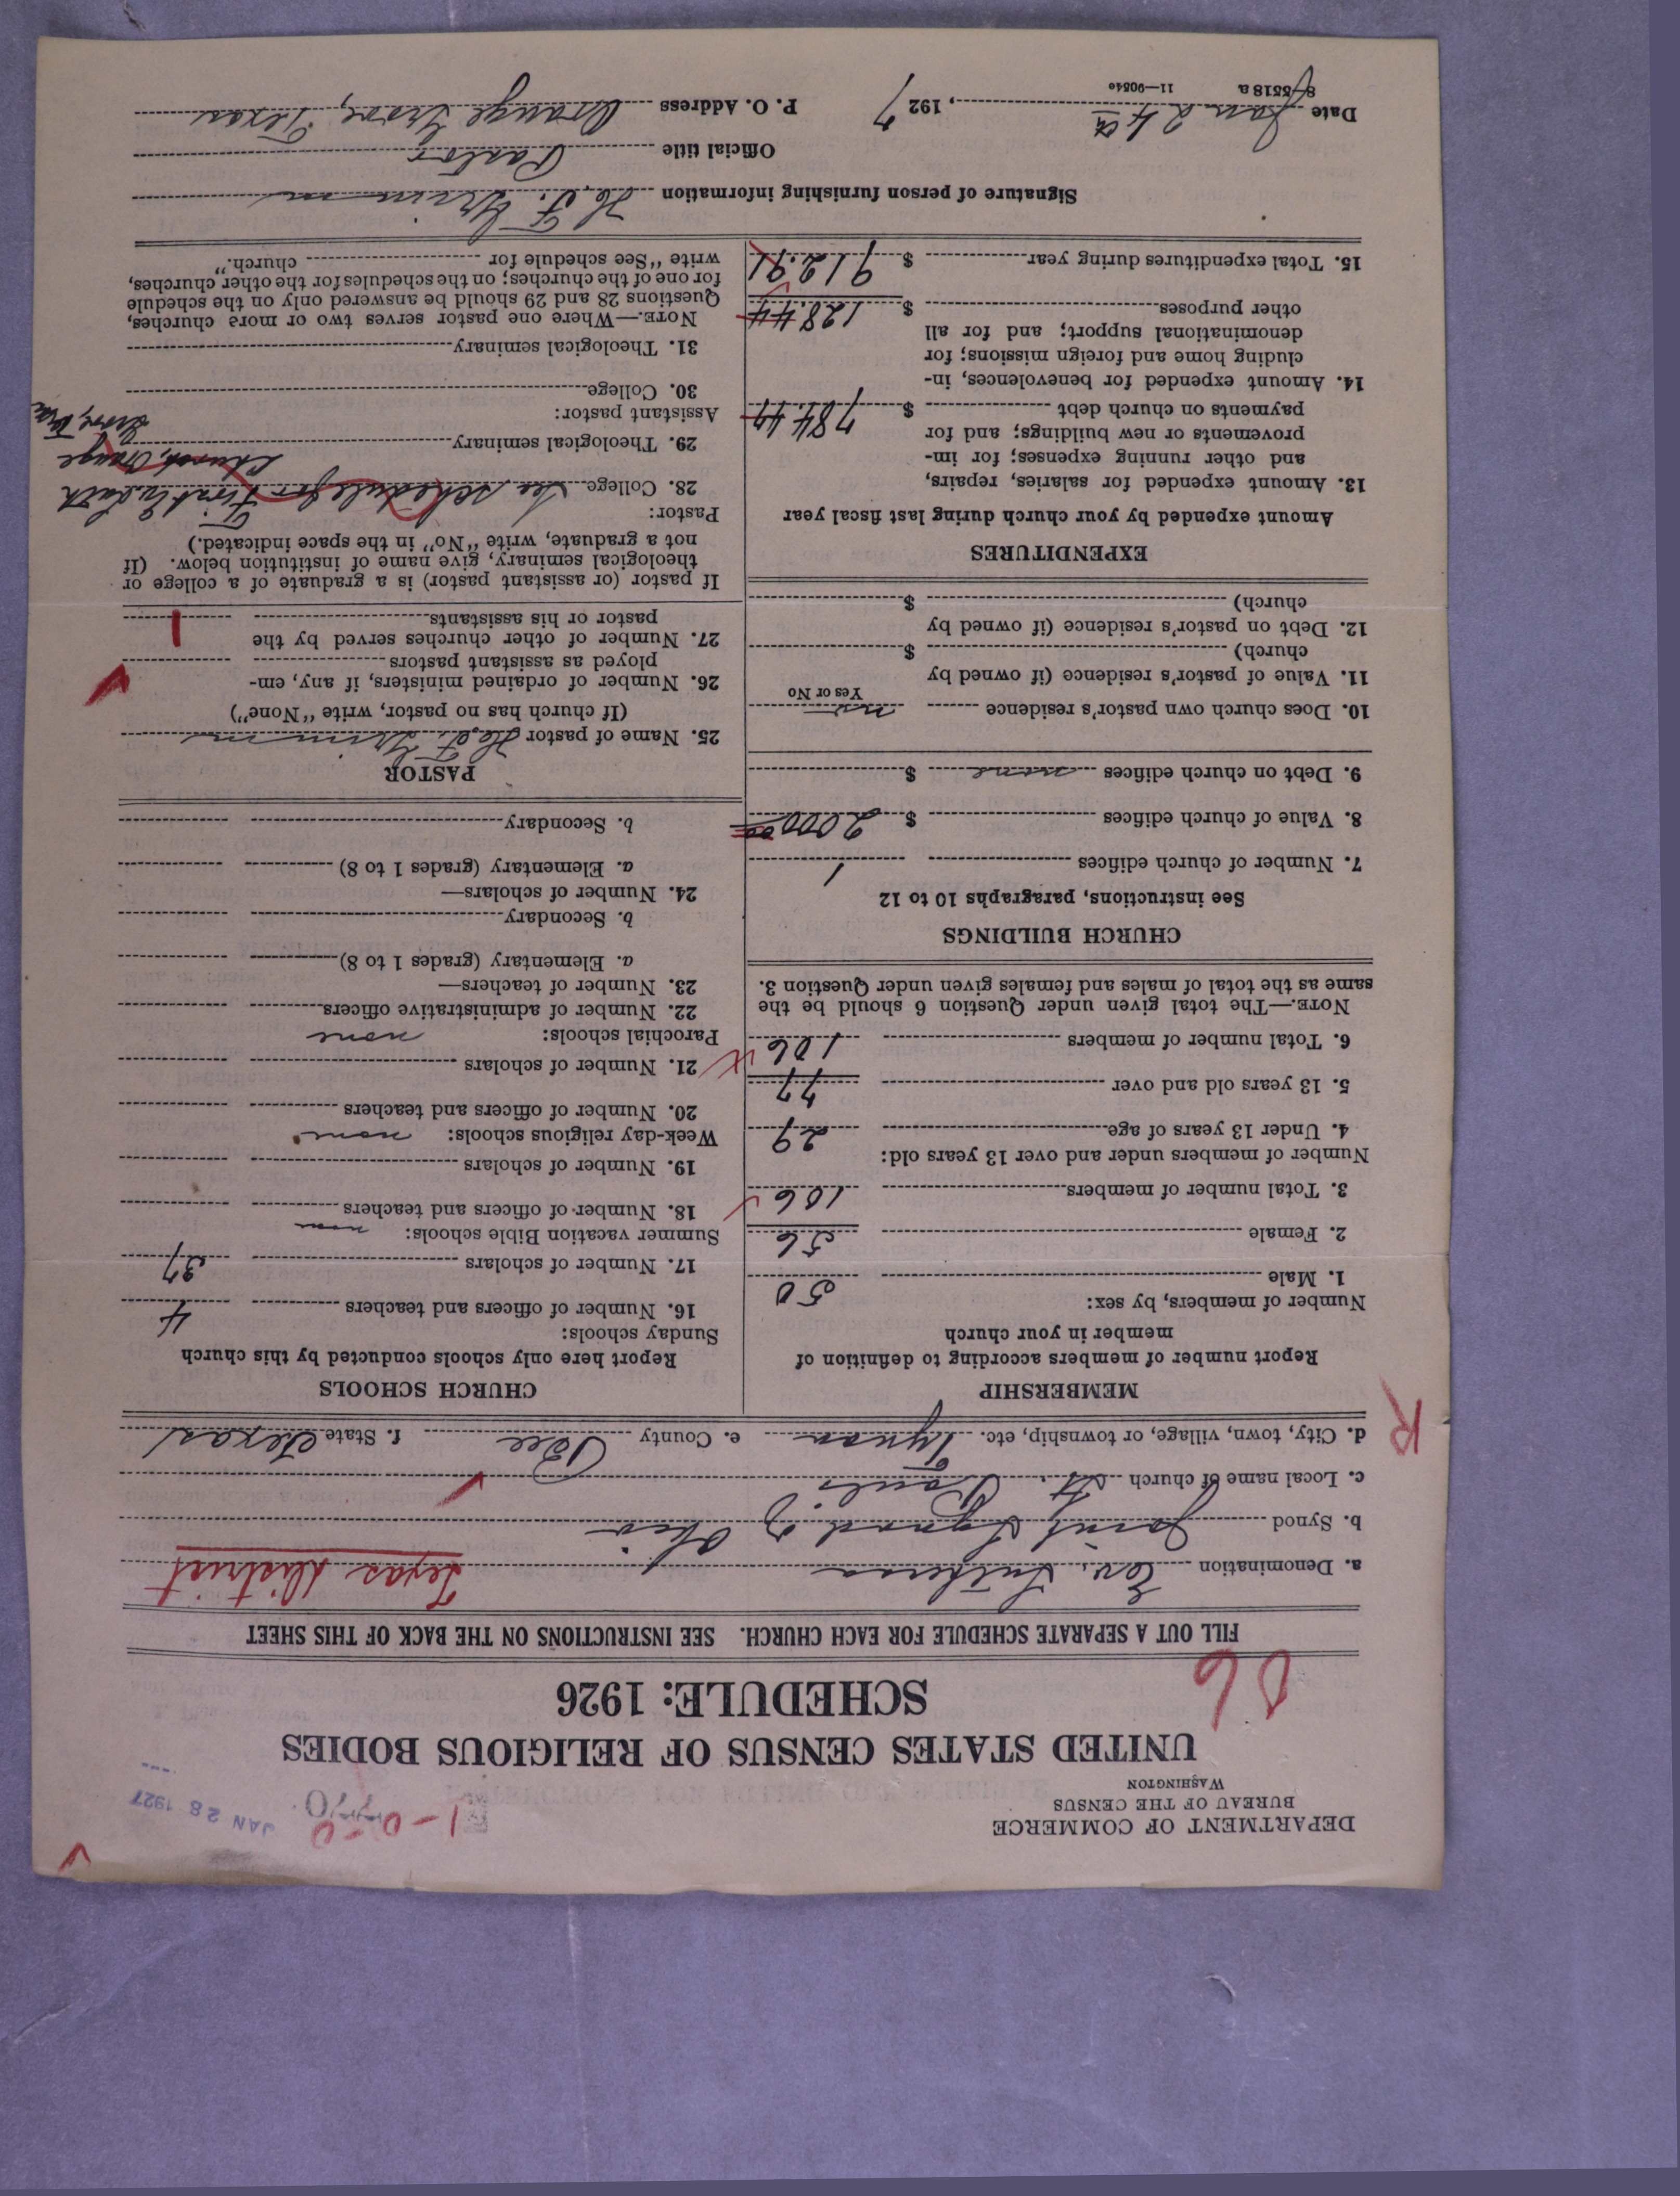 DEPARTMENT OF COMMERCE
BUREAU OF THE CENSUS
WASHINGTON
1-0-0
JAN 28 1927
UNITED STATES CENSUS OF RELIGIOUS BODIES
SCHEDULE: 1926
FILL OUT A SEPARATE SCHEDULE FOR EACH CHURCH. SEE INSTRUCTIONS ON THE BACK OF THIS SHEET
a. Denomination Ev. Lutheran Texas District
b. Synod Joint Synod of Ohio
c. Local name of church St. Pauls
d. City, town, village, or township, etc. Tynan e. County Bee f. State Texas
R
MEMBERSHIP
Report number of members according to definition of
member in your church
Number of members, by sex:
1. Male 50
2. Female 56
3. Total number of members 106
Number of members under and over 13 years old:
4. Under 13 years of age 29
5. 13 years old and over 77
6. Total number of members 106
NOTE.—The total given under Question 6 should be the
same as the total of males and females given under Question 3.
CHURCH BUILDINGS
See instructions, paragraphs 10 to 12
7. Number of church edifices 1
8. Value of church edifices $ 2000.00
9. Debt on church edifices none $
10. Does church own pastor's residence no
Yes or No
11. Value of pastor's residence (if owned by
church) $
12. Debt on pastor's residence (if owned by
church) $
EXPENDITURES
Amount expended by your church during last fiscal year
13. Amount expended for salaries, repairs,
and other running expenses; for im-
provements or new buildings; and for
payments on church debt $ 784.47
14. Amount expended for benevolences, in-
cluding home and foreign missions; for
denominational support; and for all
other purposes $ 128.44
15. Total expenditures during year $ 912.91
CHURCH SCHOOLS
Report here only schools conducted by this church
Sunday schools:
16. Number of officers and teachers 4
17. Number of scholars 37
Summer vacation Bible schools: none
18. Number of officers and teachers
19. Number of scholars
Week-day religious schools: none
20. Number of officers and teachers
21. Number of scholars
Parochial schools: none
22. Number of administrative officers
23. Number of teachers—
a. Elementary (grades 1 to 8)
b. Secondary
24. Number of scholars—
a. Elementary (grades 1 to 8)
b. Secondary
PASTOR
25. Name of pastor
(If church has no pastor, write "None")
26. Number of ordained ministers, if any, em-
ployed as assistant pastors
27. Number of other churches served by the
pastor or his assistants 1
If pastor (or assistant pastor) is a graduate of a college or
theological seminary, give name of institution below. (If
not a graduate, write "No" in the space indicated.)
Pastor:
28. College See schedule for First Ev. Luth
Church, Orange
29. Theological seminary Grove, Tex
Assistant pastor:
30. College
31. Theological seminary
NOTE.—Where one pastor serves two or more churches,
Questions 28 and 29 should be answered only on the schedule
for one of the churches; on the schedules for the other churches,
write "See schedule for church."
Signature of person furnishing information
Official title Pastor
Date Jan 24th, 1927 P. O. Address Orange Grove, Texas
8-5518 a 11—9054